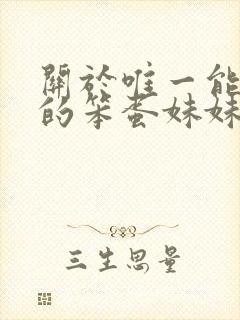 關於唯一能
的笨蛋妹妹
三生思量